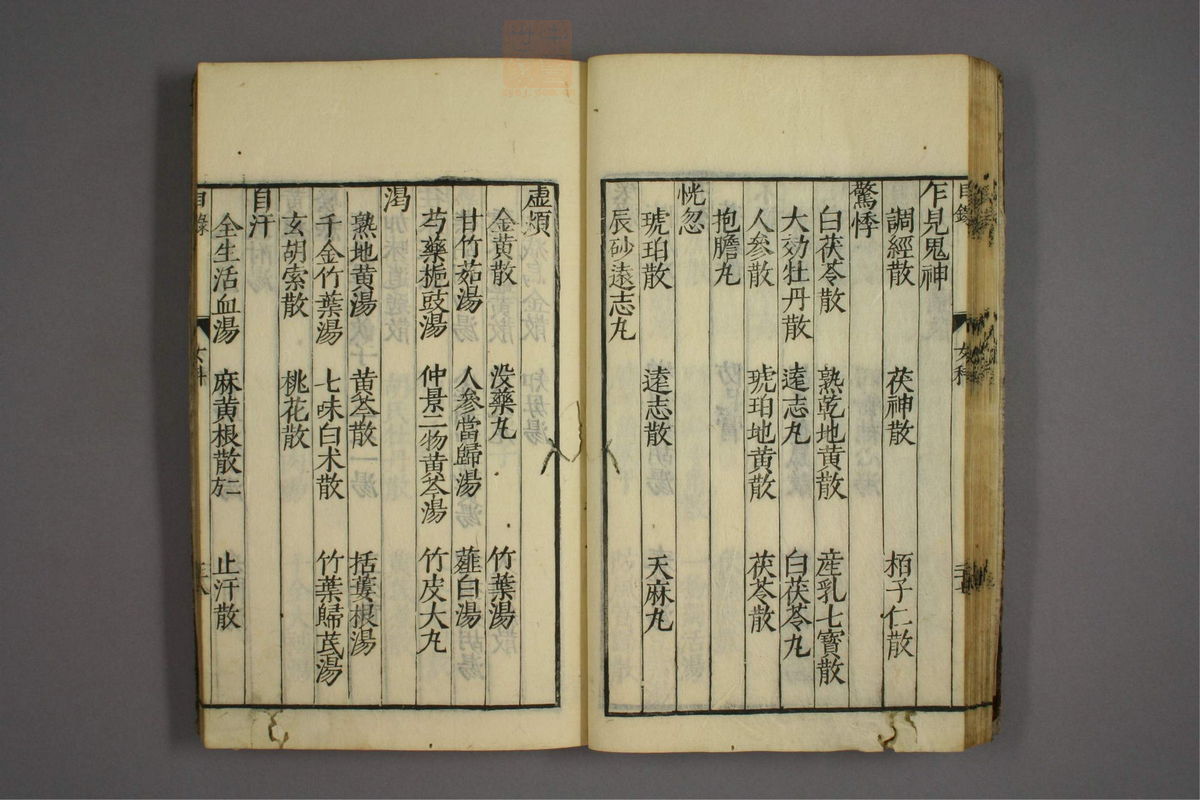 乍見鬼神
調經散 茯神散 栢子仁散
驚悸
白茯苓散 熟乾地黄散 産乳七寳散
大効牡丹散 逺志丸 白茯苓丸
人參散 琥珀地黄散 茯苓散
抱膽丸
恍忽
琥珀散 逺志散 天麻丸
辰砂逺志丸
虚煩
金黄散 没藥丸 竹葉湯
甘竹茹湯 人參當歸湯 薤白湯
芍藥梔豉湯 仲景二物黄芩湯 竹皮大丸
渇
熟地黄湯 黄芩散 括蔞根湯
千金竹葉湯 七味白术散 竹葉歸芪湯
玄胡索散 桃花散
自汗
全生活血湯 麻黄根散二方 止汗散
目錄 女科